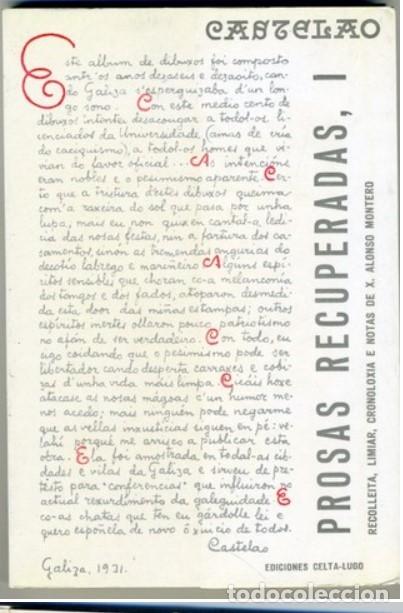 CASTELAO
Este album de dibuxos foi composto
antr'os anos dezaseis e dezaoito, can-
do Galiza s'esperguizaba d'un lon-
go sono. Con este medio cento de
dibuxos intentei desacougar a todol-os li-
cenciados da Universidade (amas de cría
do caciquismo), a todol-os homes que vi-
vían do favor oficial... As intenciós
eran nobles e o pesimismo aparente. Cer-
to que a tristura d'estes dibuxos queima
com'a raxeira do sol que pasa por unha
lupa, mais eu non quixen cantal-a ledi-
cia das nosas festas, nin a fartura dos ca-
samentos, sinón as tremendas angurias do
decotío labrego e mariñeiro. Alguns espí-
ritos sensibles que choran co-a melanconía
dos tangos e dos fados, atoparon desmedi-
da esta door das miñas estampas; outros
espíritos mortos ollaron pouco patriotismo
no afán de ser verdadeiro. Con todo, eu
sigo coidando que o pesimismo pode ser
libertador cando desperta carraxes e cobi-
zas d'unha vida mais limpa. Quizáis hoxe
atacase as nosas mágoas c'un humor me-
nos acedo; mais ninguén pode negarme
que as vellas inxusticias siguen en pé: ve-
lahí porqué me arrisco a publicar esta
obra. Ela foi amostrada en todal-as ci-
dades e vilas da Galiza e sirveu de pre-
testo para "conferencias" que influiron no
actual rexurdimento da galeguidade. E
co-as chatas que ten eu gárdolle lei e
quero espoñela de novo ô xuicio de todos.
Castelao
Galiza, 1931.
PROSAS RECUPERADAS, I
RECOLLEITA, LIMIAR, CRONOLOXIA E NOTAS DE X. ALONSO MONTERO
EDICIONES CELTA-LUGO
todocoleccion.net